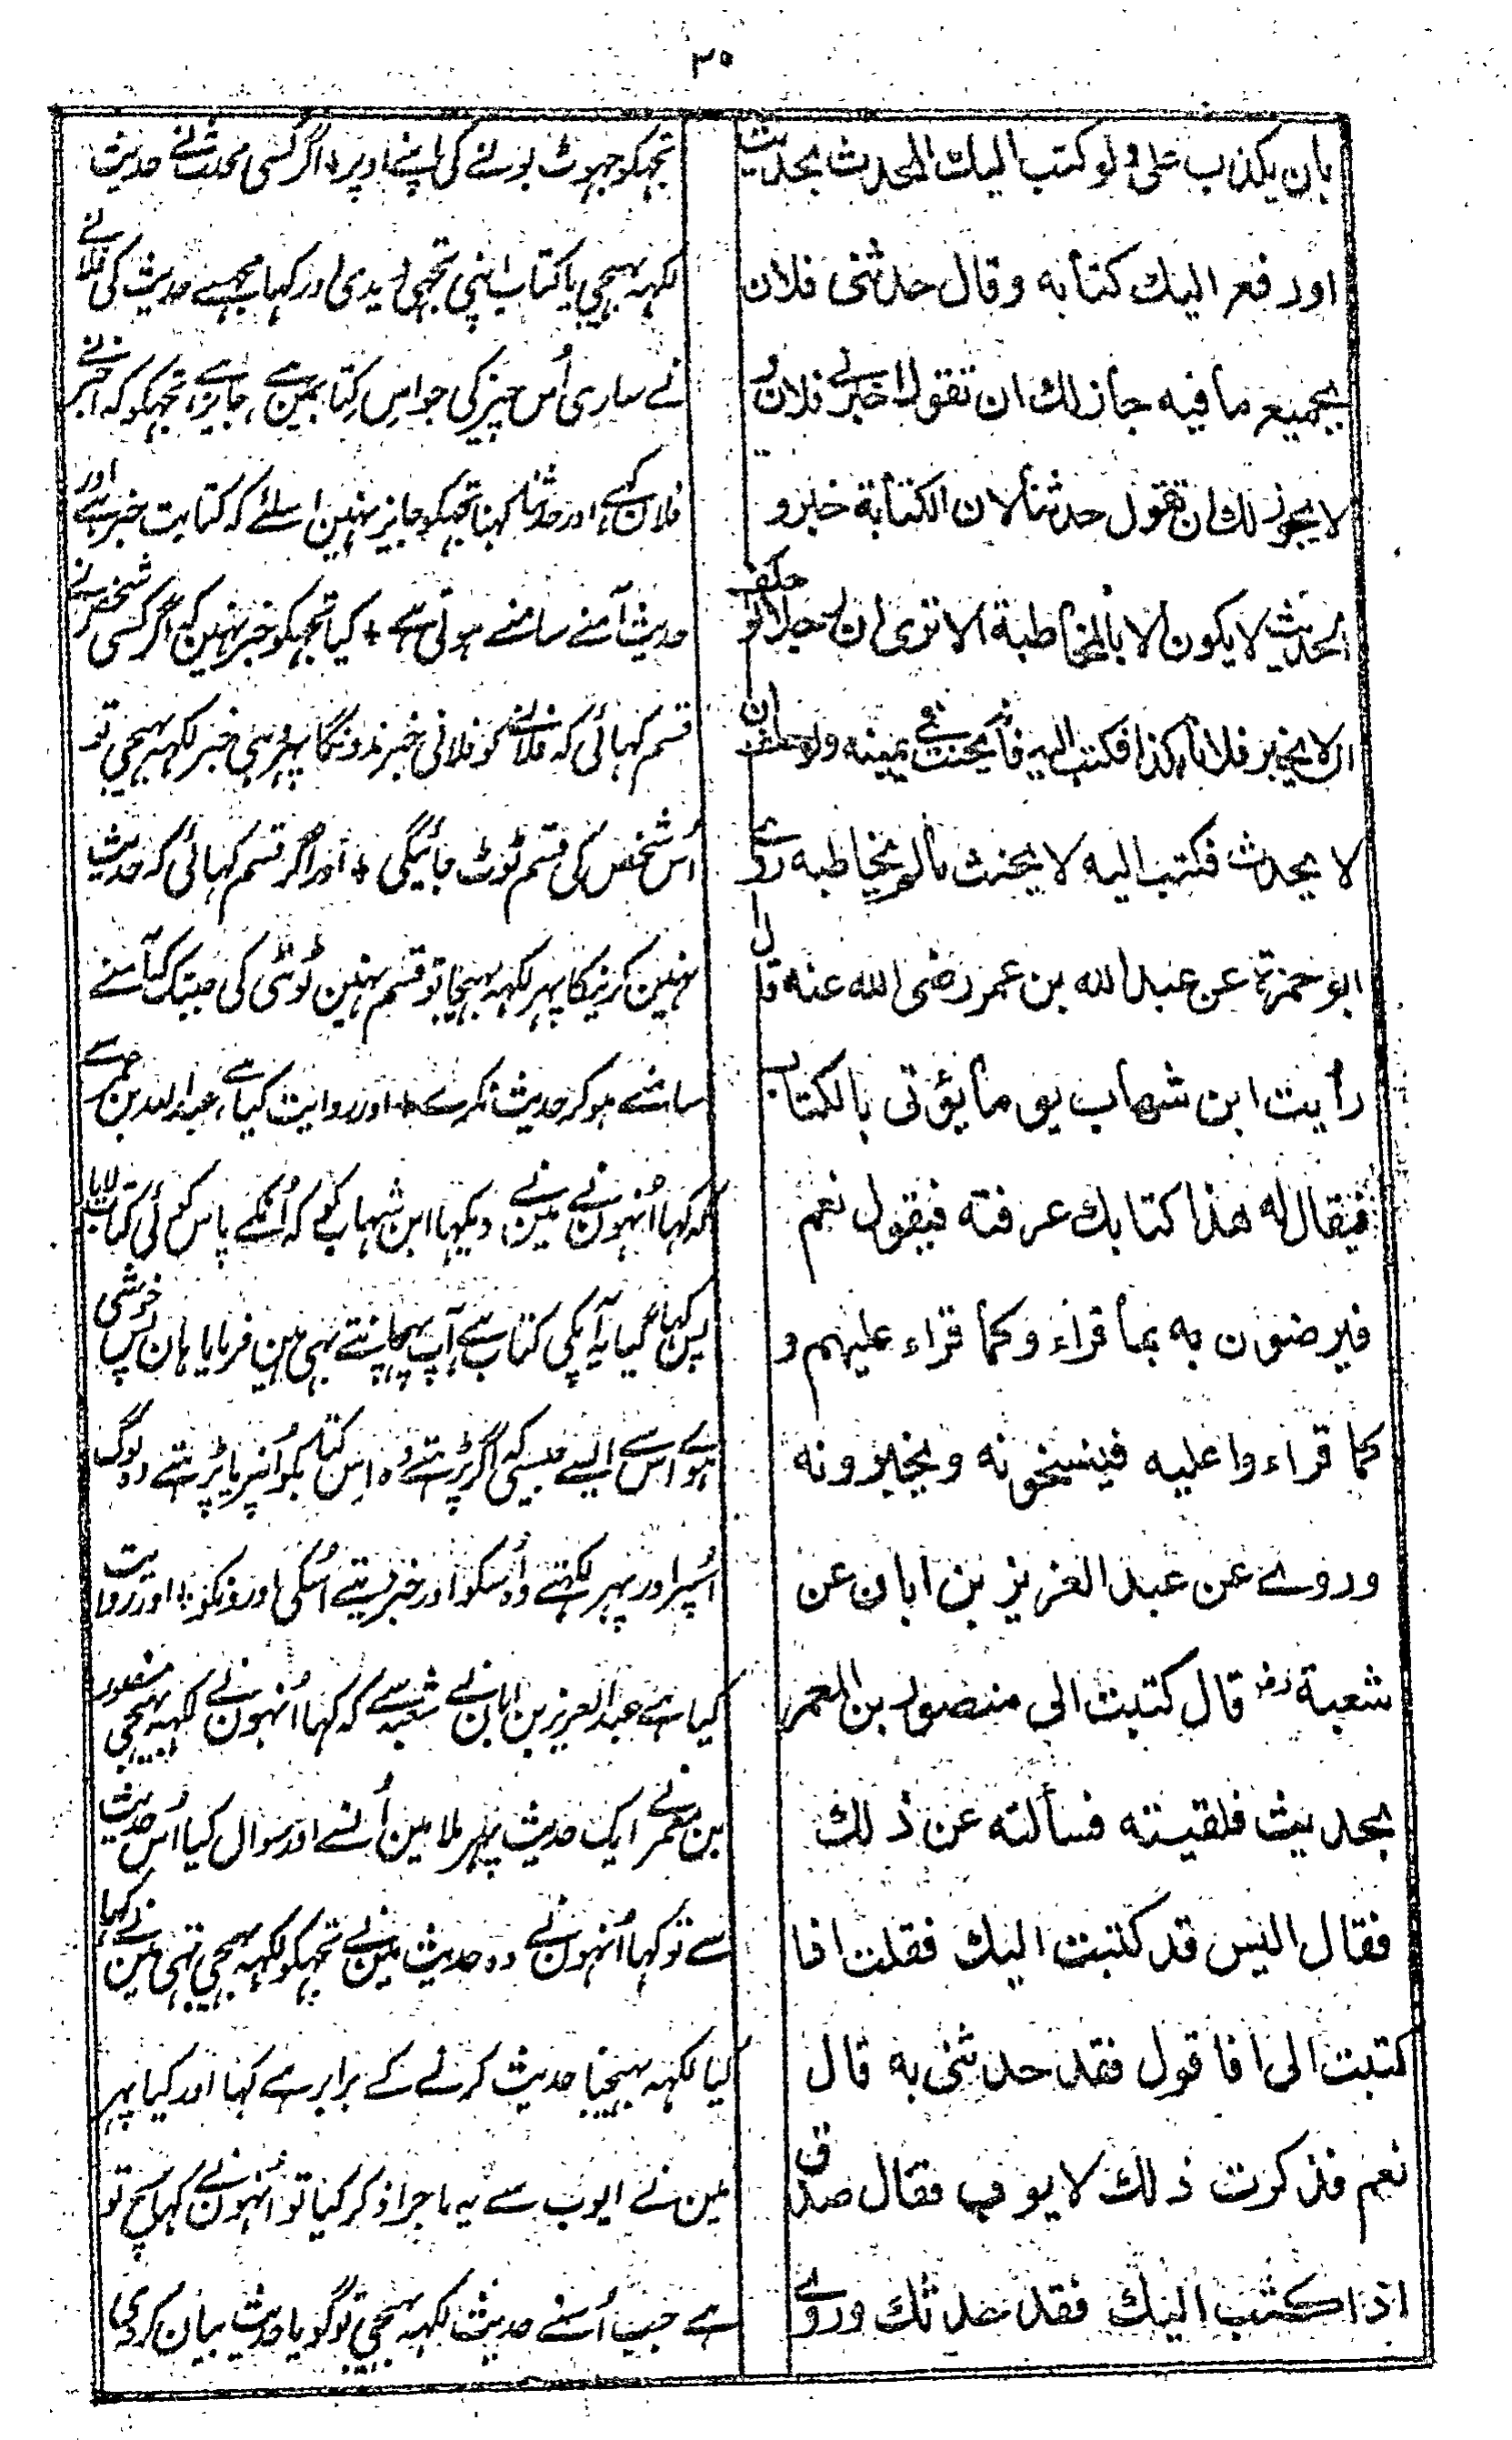 ٣٠
بان يكذب على ولو كتب اليك المحدث بحديث
او دفع اليك كتابه وقال حدثنى فلان
بجميع ما فيه جاز لك ان تقول اخبرنى فلان و
لا يجوز لك ان تقول حدثنا لان الكتابة خبر و
الحديث لا يكون الا بالمخاطبة الا ترى ان رجلا لو حلف
ان لا يخبر فلانا بكذا فكتب اليه فانه يحنث فى يمينه ولو حلف ان
لا يحدث فكتب اليه لا يحنث مالم يخاطبه روى
ابو حمزة عن عبد الله بن عمر رضى الله عنه قال
رأيت ابن شهاب يوما يؤتى بالكتاب
فيقال له هذا كتابك عرفته فيقول نعم
فيرضون به بما قراء وكما قراء عليهم و
كما قراءوا عليه فينسخونه ويخبرونه
وروى عن عبد العزيز بن ابان عن
شعبة قال كتبت الى منصور بن المعمر
بحديث فلقيته فسألته عن ذلك
فقال اليس قد كتبت اليك فقلت اذا
كتبت الى اذا قول فقد حدثنى به قال
نعم فذكرت ذلك لايوب فقال صدق
اذا كتب اليك فقد حدثك وروى
تجہکو جہوٹ بولنے کی اپنے اوپر + اگر کسی محدث نے حدیث
لکہہ بہیجی یا کتاب اپنی تجہی دیدی اور کہا مجہسے حدیث کی فلانے
نے ساری اُس چیز کی جو اس کتاب مین ہے، جائز ہے تجہکو کہ اخبرنے
فلان کہے، اور حدثنا کہنا تجہکو جایز نہین اسلئے کہ کتابت خبر ہے اور
حدیث آمنے سامنے ہوتی ہے + کیا تجہکو خبر نہین کہ اگر کسی شخص نے
قسم کہائی کہ فلانے کو فلانی خبر ندونگا پہر وہی خبر لکہہ بہیجی تو
اُس شخص کی قسم ٹوٹ جائیگی + اور اگر قسم کہائی کہ حدیث
نہین کرنیکا پہر لکہہ بہیجا تو قسم نہین ٹوٹی کی جبتک کہ آمنے
سامنے ہوکر حدیث نکرے + اور روایت کیا ہے عبد اللہ بن عمر سے
کہ کہا اُنہون نے مین نے دیکہا ابن شہاب کو کہ اُنکے پاس کوئی کتاب لایا
پس کہا گیا یہ آپکی کتاب ہے آپ پہچانتے بہی ہین فرمایا ہان پس خوشی
ہوے اس سے ایسے جیسی کہ اگر پڑہتے وہ اِس کتاب کو اُنپر یا پڑہتے وہ لوگ
اُسپر اور پہر لکہتے وہ اُسکو اور خبر دیتے اُسکی اورونکو + اور روایت
کیا ہے عبد العزیز بن ابان نے شعبہ سے کہ کہا اُنہون نے لکہہ بہیجی منصور
بن معمر نے ایک حدیث پہر ملا مین اُنسے اور سوال کیا اُس حدیث
سے تو کہا اُنہون نے وہ حدیث مین نے تجہکو لکہہ بہیجی تہی مین نے کہا
کیا لکہہ بہیجنا حدیث کرنے کے برابر ہے کہا اور کیا پہر
مین نے ایوب سے یہ ماجرا ذکر کیا تو اُنہون نے کہا سچ تو
ہے جب اُسنے حدیث لکہہ بہیجی تو گویا حدیث بیان کردی